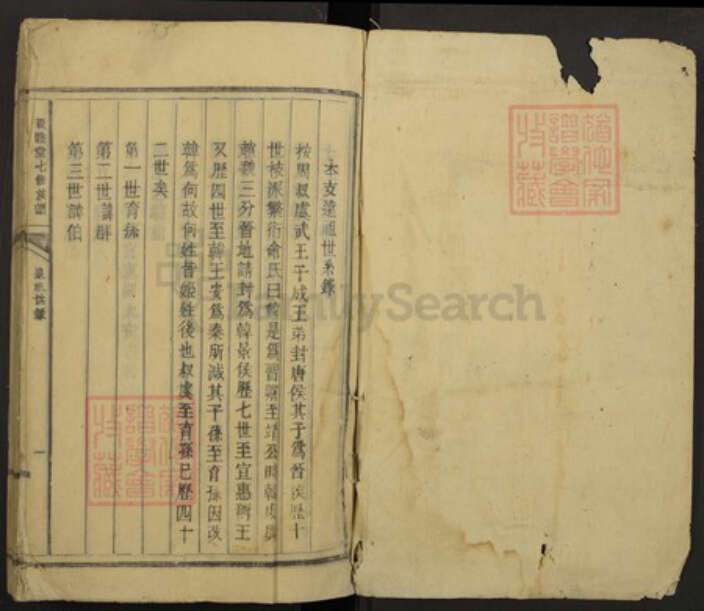 本支遠祖世系錄
按周叔虞武王子成王弟封唐侯其子爲晉侯歷十
世枝派繁衍命氏曰韓是爲晉卿至靖公時韓虔與
趙魏三分晉地請封爲韓景侯歷七世至宣惠稱王
又歷四世至韓王安爲秦所滅其子孫至育孫因改
韓爲何故何姓皆姬姓後也叔虞至育孫已歷四十
二世矣
第一世育孫
第二世
第三世
七修族譜
一
FamilySearch